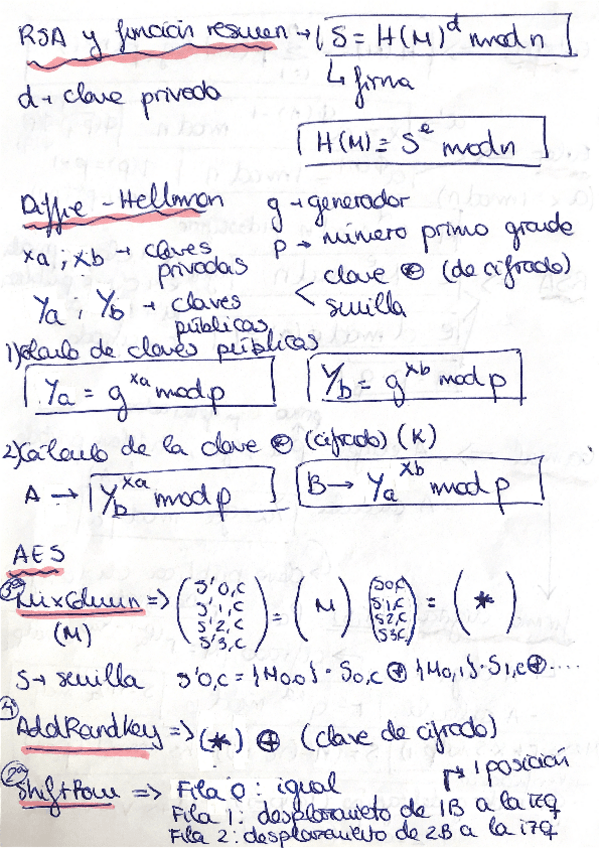 RSA y función resumen → S = H(M)^d mod n
d → clave privada
↳ firma
H(M) = S^e mod n
Diffie - Hellman
g → generador
p → número primo grande
xa ; xb → claves privadas
< clave ⊖ (de cifrado)
semilla
Ya ; Yb → claves públicas
1) Cálculo de claves públicas
Ya = g^xa mod p
Yb = g^xb mod p
2) Cálculo de la clave ⊖ (cifrado) (K)
A → Yb^xa mod p
B → Ya^xb mod p
AES
3º MixColumn => (S'0,C S'1,C S'2,C S'3,C) = (M) (S0,C S'1,C S2,C S3,C) = (*)
(M)
S → semilla S'0,C = {M0,0} · S0,C ⊕ {M0,1} · S1,C ⊕ ....
4) AddRandKey => (*) ⊕ (clave de cifrado)
2º ShiftRow => Fila 0 : igual
↱ 1 posición
Fila 1 : desplazamiento de 1B a la izq
Fila 2 : desplazamiento de 2B a la izq